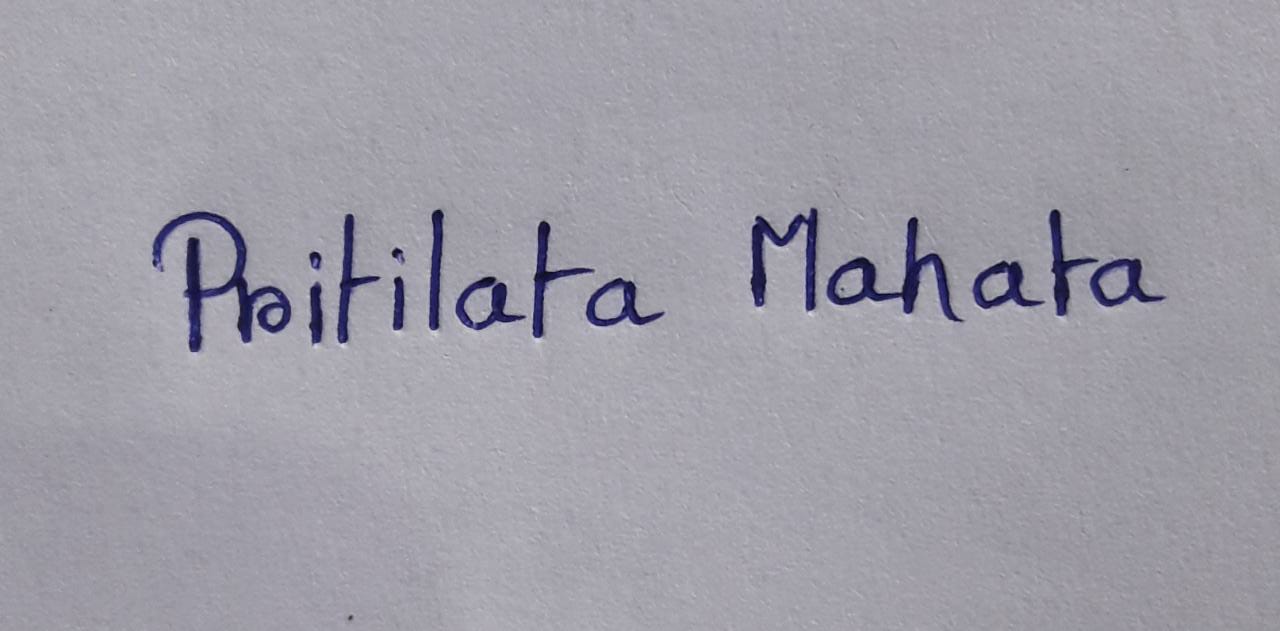 Pritilata Mahata